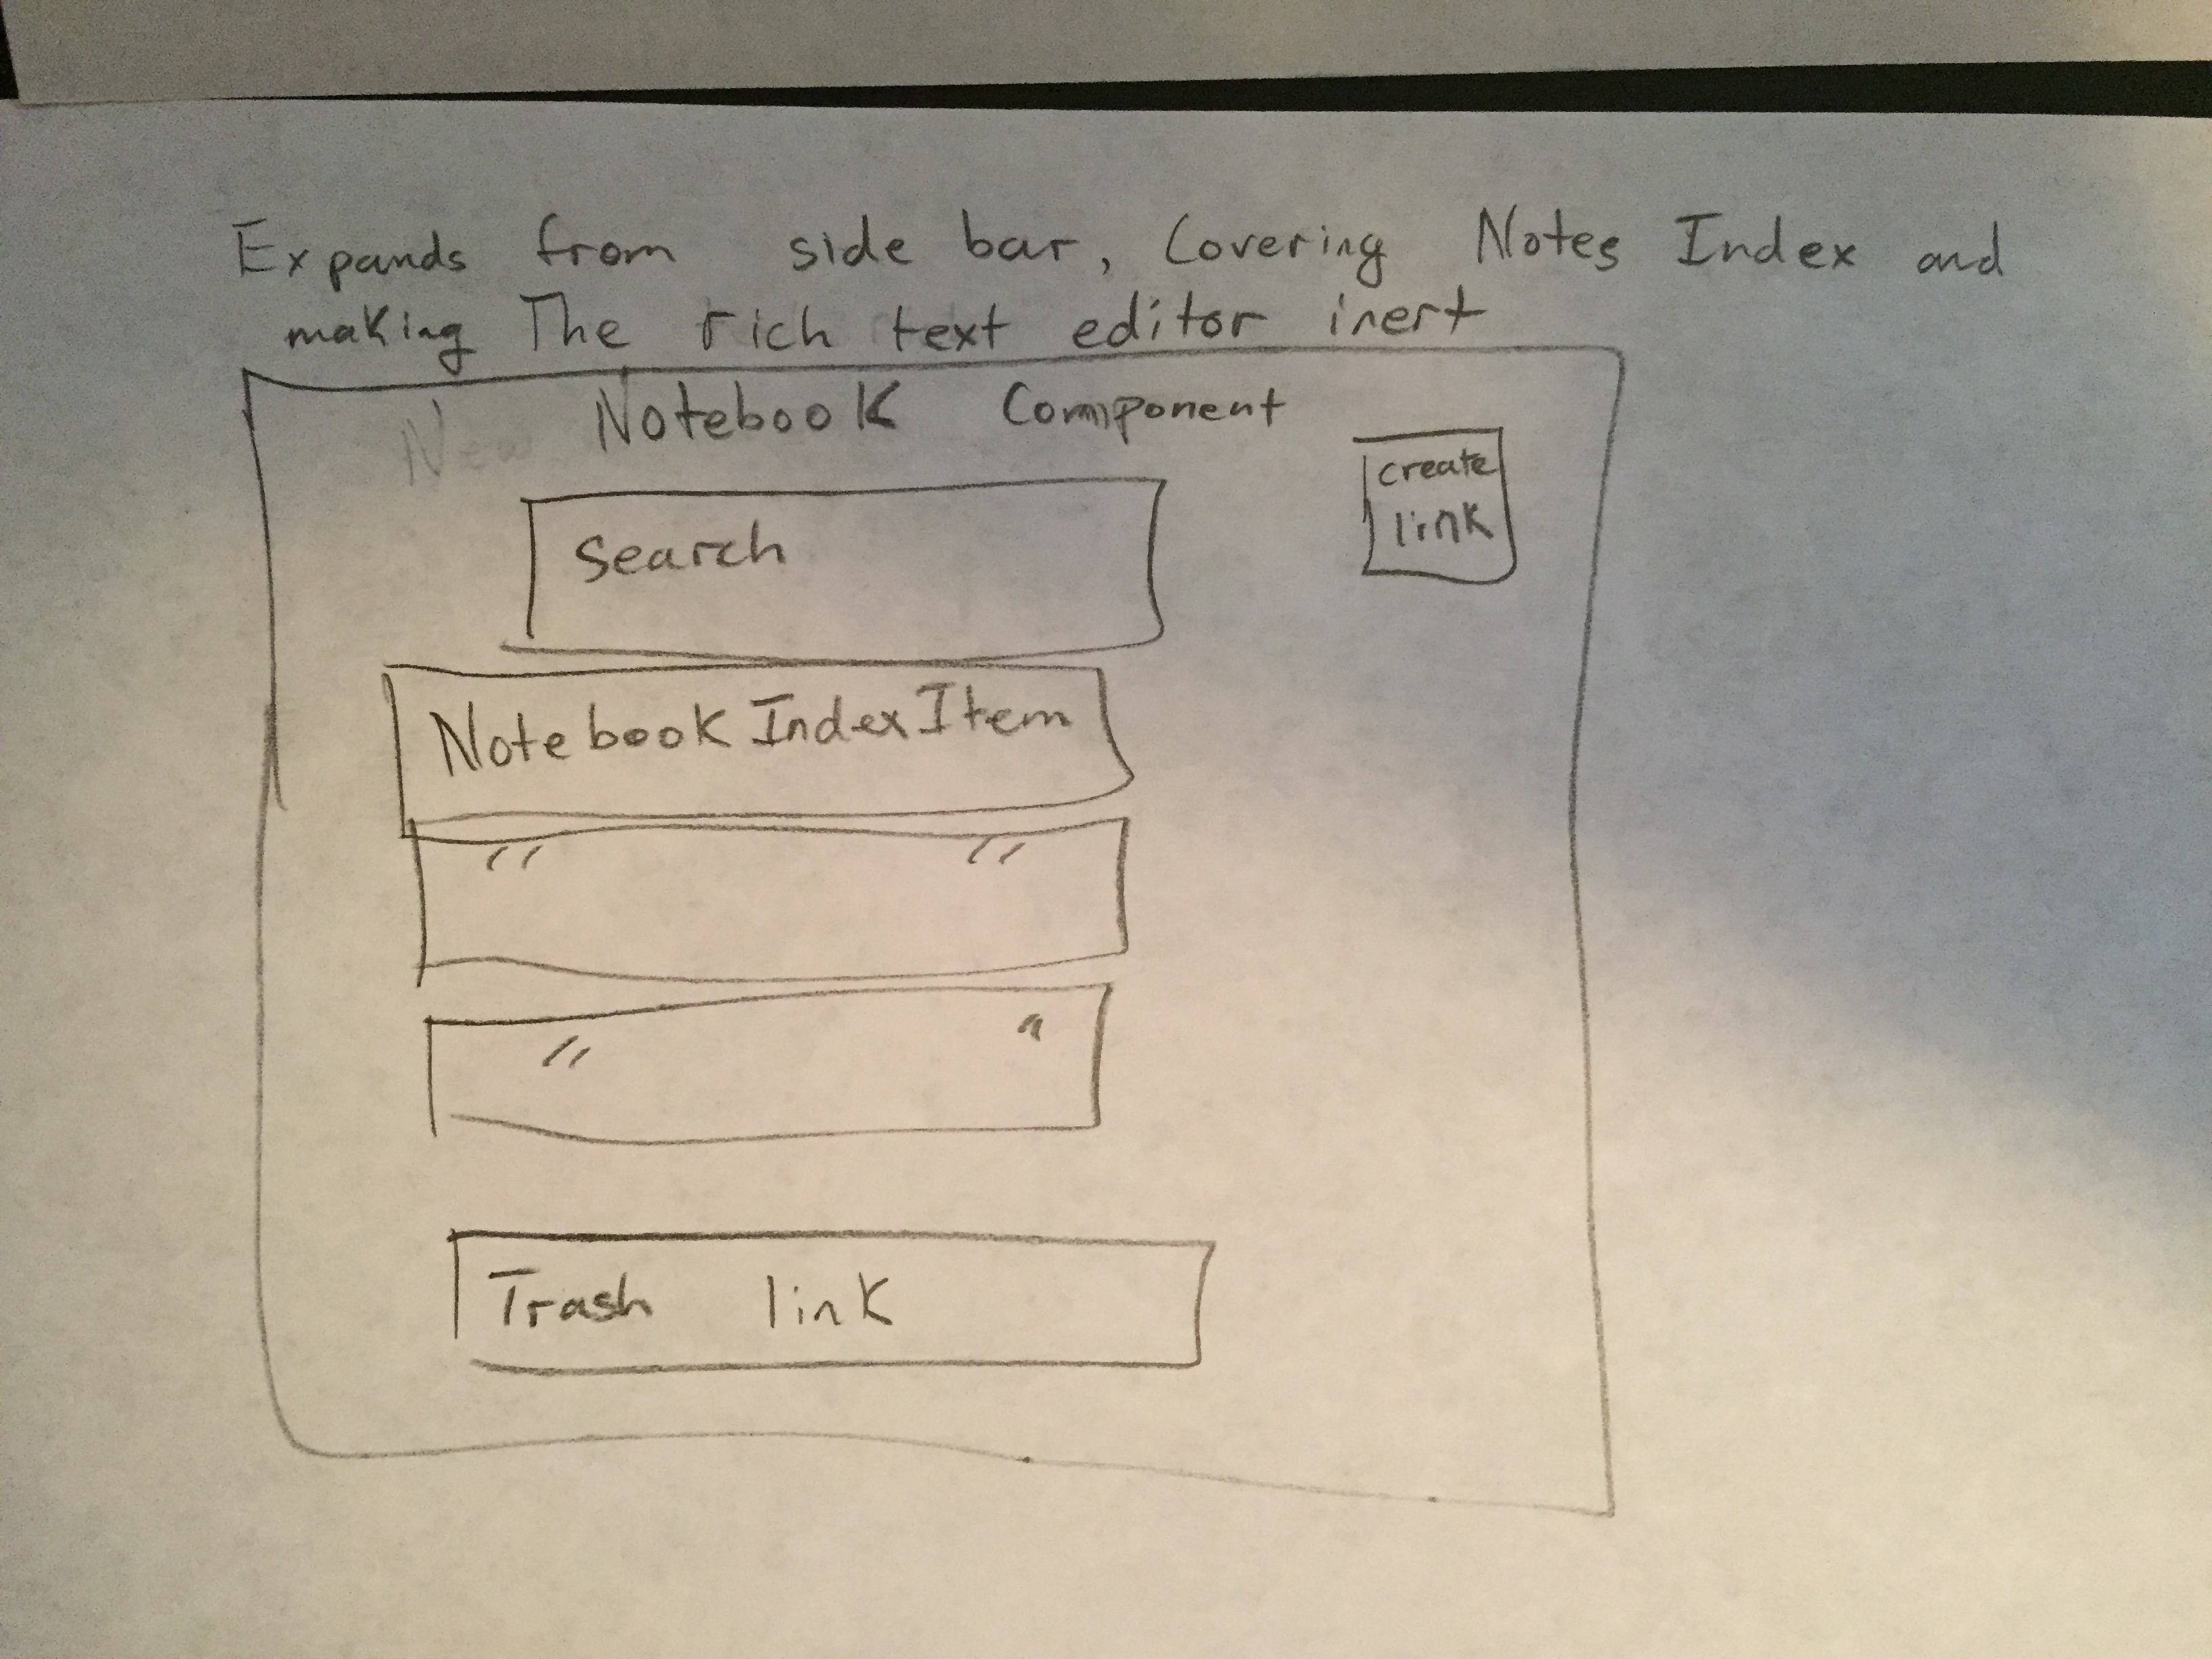 Expands from side bar, Covering Notes Index and
making The rich text editor inert
New Notebook Component
create
link
Search
NotebookIndexItem
" "
" "
Trash link